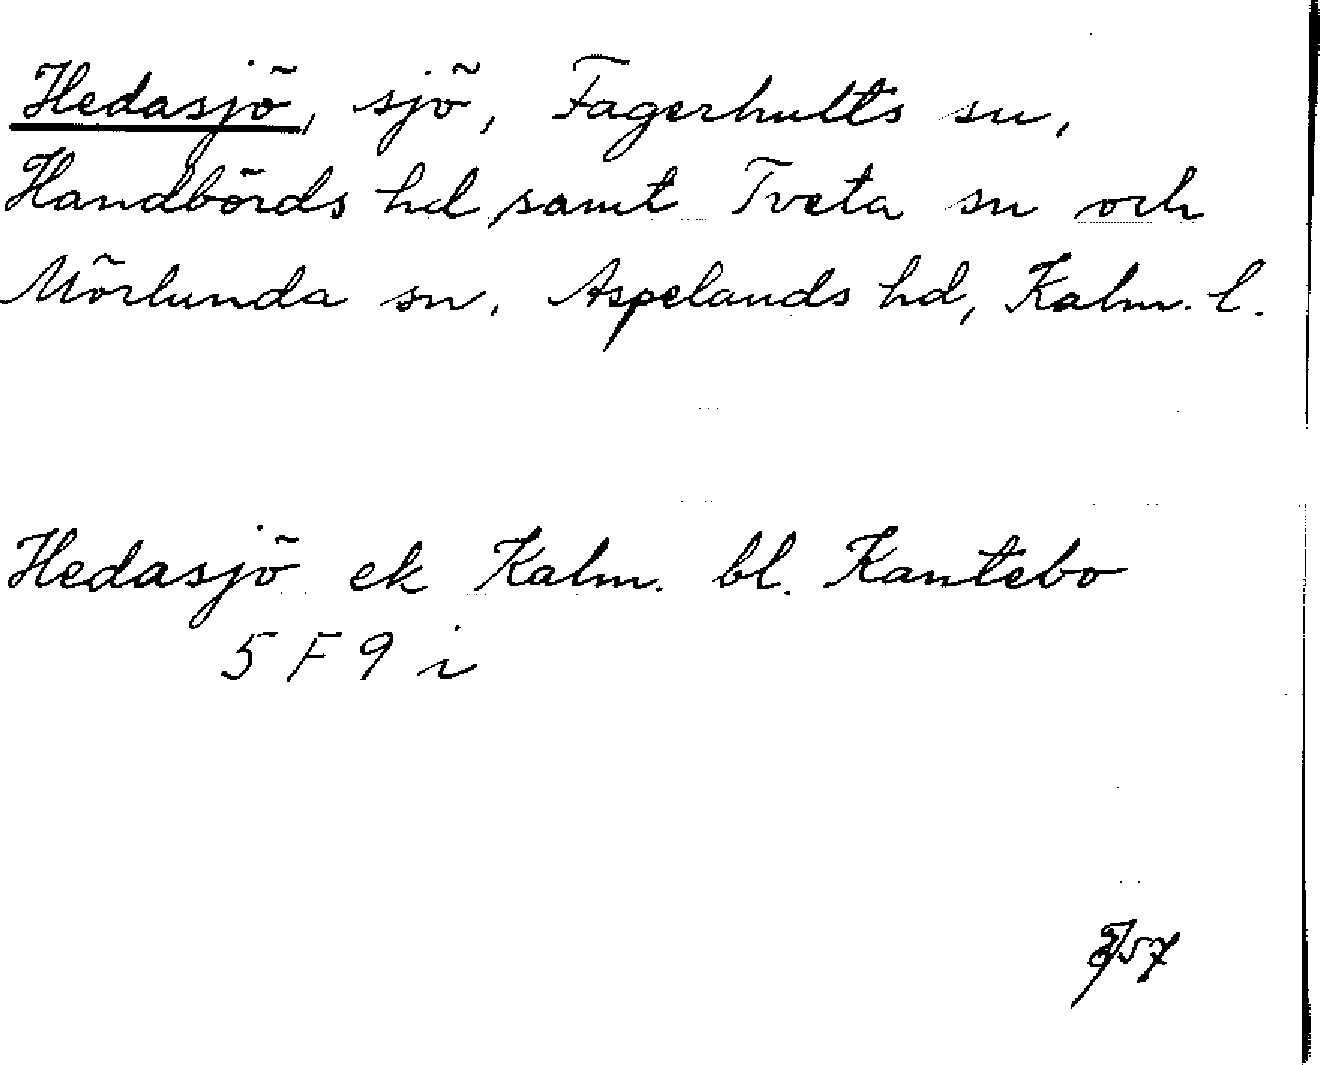 Hedasjö, sjö, Fagerhults sn,
Handbörds hd, samt Tveta sn och
Mörlunda sn, Aspelands hd, Kalm. l.
Hedasjö ek Kalm. bl. Kantebo
5 F 9 i